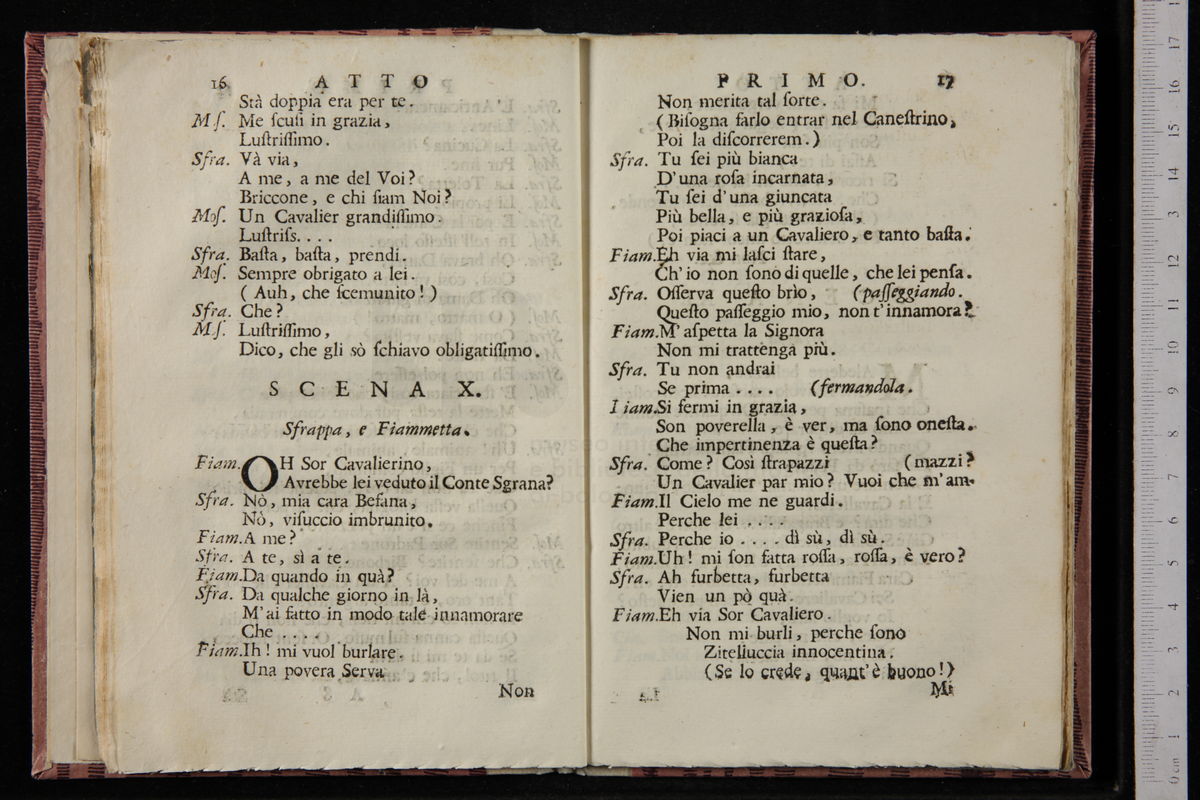 16 ATTO
Stà doppia era per te.
Mſ. Me ſcuſi in grazia,
Luſtriſſimo.
Sfra. Và via,
A me, a me del Voi?
Briccone, e chi ſiam Noi?
Moſ. Un Cavalier grandiſſimo.
Luſtriſs....
Sfra. Baſta, baſta, prendi.
Moſ. Sempre obrigato a lei.
( Auh, che ſcemunito! )
Sfra. Che?
Mſ. Luſtriſſimo,
Dico, che gli sò ſchiavo obligatiſſimo.
SCENA X.
Sfrappa, e Fiammetta.
Fiam. OH Sor Cavalierino,
Avrebbe lei veduto il Conte Sgrana?
Sfra. Nò, mia cara Befana,
Nò, viſuccio imbrunito.
Fiam. A me?
Sfra. A te, sì a te.
Fiam. Da quando in quà?
Sfra. Da qualche giorno in là,
M'ai fatto in modo tale innamorare
Che ....
Fiam. Ih! mi vuol burlare.
Una povera Serva
Non
PRIMO. 17
Non merita tal ſorte.
( Biſogna farlo entrar nel Caneſtrino,
Poi la diſcorrerem.)
Sfra. Tu ſei più bianca
D'una roſa incarnata,
Tu ſei d'una giuncata
Più bella, e più grazioſa,
Poi piaci a un Cavaliero, e tanto baſta.
Fiam. Eh via mi laſci ſtare,
Ch'io non ſono di quelle, che lei penſa.
Sfra. Oſſerva queſto brìo, (paſſeggiando.
Queſto paſſeggio mio, non t'innamora?
Fiam. M'aſpetta la Signora
Non mi trattenga più.
Sfra. Tu non andrai
Se prima .... (fermandola.
Fiam. Si fermi in grazia,
Son poverella, è ver, ma ſono oneſta.
Che impertinenza è queſta?
Sfra. Come? Così ſtrapazzi (mazzi?
Un Cavalier par mio? Vuoi che m'am-
Fiam. Il Cielo me ne guardi.
Perche lei ....
Sfra. Perche io .... dì sù, dì sù.
Fiam. Uh! mi ſon fatta roſſa, roſſa, è vero?
Sfra. Ah furbetta, furbetta
Vien un pò quà.
Fiam. Eh via Sor Cavaliero.
Non mi burli, perche ſono
Zitelluccia innocentina.
(Se lo crede, quant'è buono!)
Mi